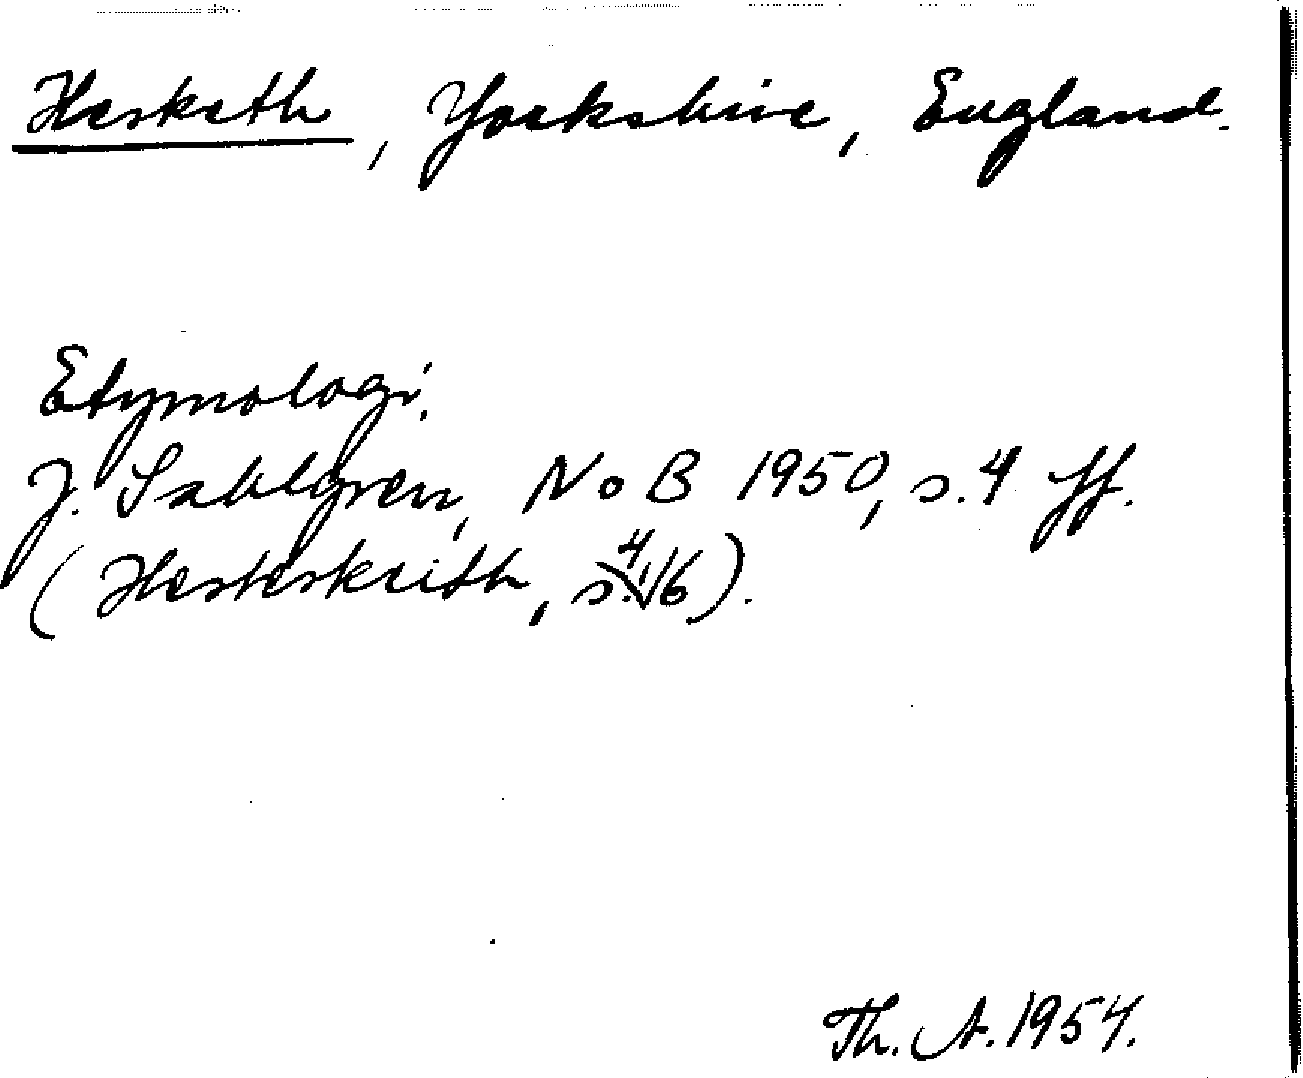 Hesketh, Yorkshire, England.
Etymologi.
J. Sahlgren, NoB 1950, s. 4 ff.
(Hesteskeith, s. 4, 16).
Th. A. 1954.